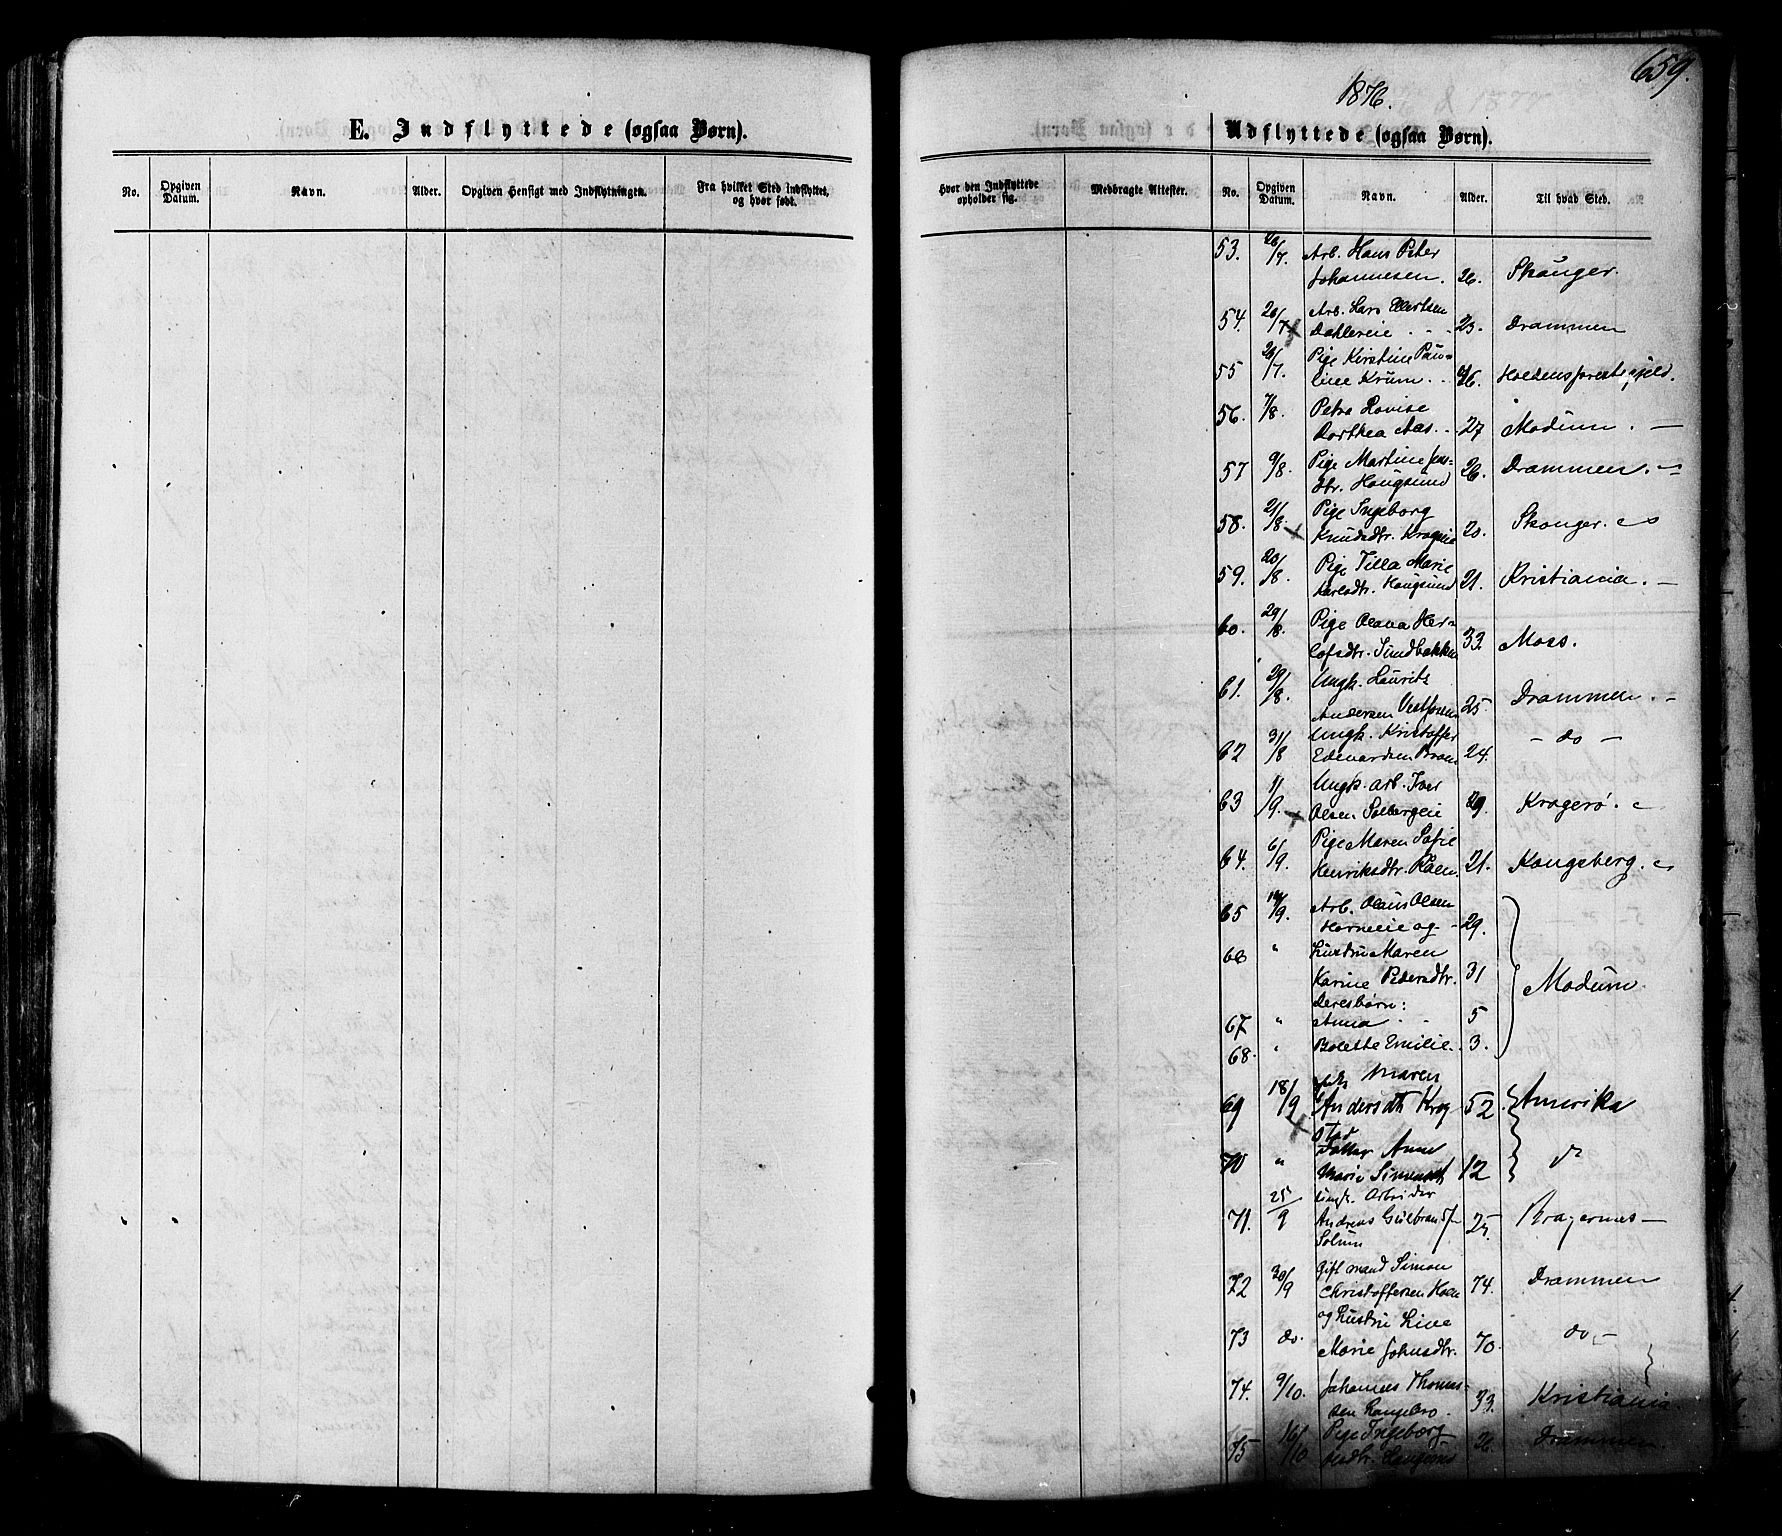 659.
1876.
E. Indflyttede (ogsaa Børn).
Udflyttede (ogsaa Børn).
No. Opgiven Datum. Navn. Alder. Opgiven Hensigt med Indflytningen. Fra hvilket Sted indflyttet, og hvor født.
Hvor den Indflyttede opholder sig. Medbragte Attester. No. Opgiven Datum. Navn. Alder. Til hvad Sted.
53. 26/7. Arb. Hans Peter
Johannesen. 26. Skauger.
54. 26/7 Arb. Lars Ellertsen
Dahlereie 23. Drammen
55 26/7. Pige Kirstine Pau-
line Krum. 26. Holdens præstegjeld.
56. 7/8. Petra Lovise
Dorthea Aas. 27 Modum. —
57 9/8. Pige Martine Jens-
dtr. Hougsund 26. Drammen. —
58. 21/8. + Pige Ingeborg
Knudsdtr. 20. Skouger.
59. 20/8. Pige Tilla Marie
Karlsdtr. Hougsund 21. Kristiania. —
60. 29/8. Pige Olava Her-
lofsdtr. Sundbakken 33. Moss.
61. 29/8. Ungk. Laurits
Andersen Vestfossen 25. Drammen. -
62 31/8 Ungk. Kristoffer
Edvardsen 24. — do —
63 11/9. + Ungk. arb. Iver
Olsen Solbergeie 29. Kragerø.
64. 6/9. Pige Maren Sofie
Henriksdtr. 21. Kongsberg.
65 14/9. Arb. Olaus Olsen
Horneie og 29.
66 " Hustru Maren
Karine Pedersdtr. 31 Modum.
deres børn:
67 " Anna 5
68. " Bolette Emilie. 3.
69 18/9 + Maren
Andersdtr Krog 52. Amerika
stad
70 " Datter Anne
Marie Simensdt 12 do
71. 25/9 Ungk. Arbeider
Andreas Gulbrands.
Solum 25. Bragernes —
72 30/9 Gift mand Simon
Christoffersen Hoen 74. Drammen
73 do. og Hustru Line
Marie Johnsdtr. 70. do. —
74. 9/10. Johannes Thomas-
sen 33. Kristiania.
75 16/10 Pige Ingeborg
26. Drammen.